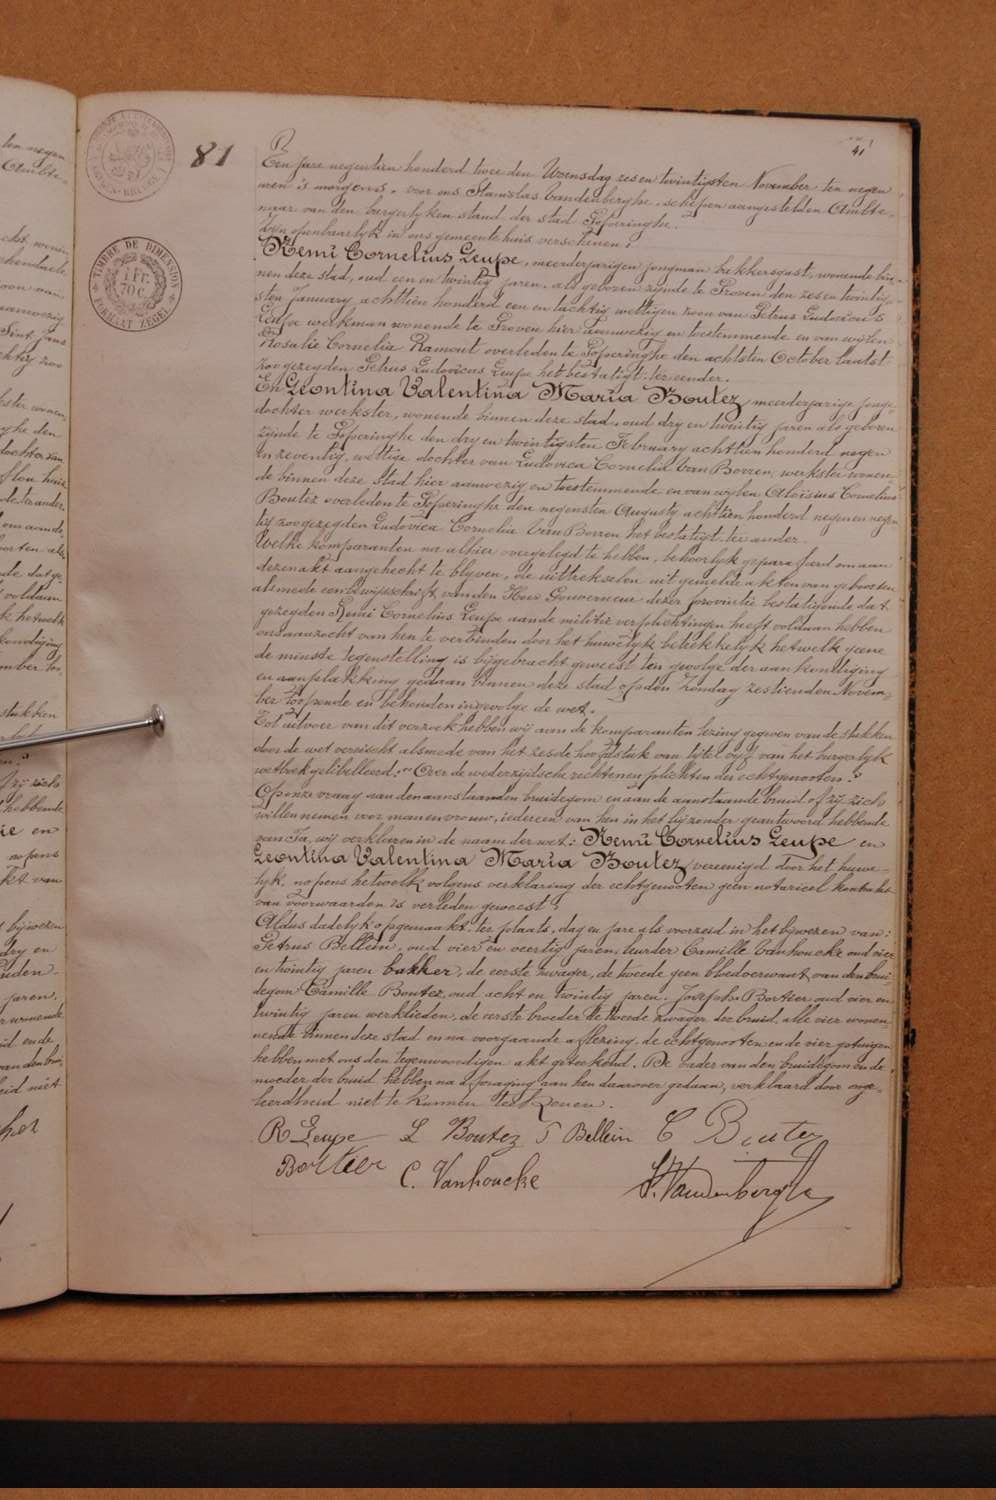 41
81
TIMBRE DE DIMENSION
1 Fr.
70 C.
FORMAAT ZEGEL
Een jare negentien honderd twee den Woensdag zes en twintigsten November ten negen
uren 's morgens, voor ons Stanislas Vandenberghe, schepen aangestelden Ambte-
naar van den burgerlyken stand der stad Poperinghe.
Zyn openbaarlyk in ons gemeentehuis verschenen:
Remi Cornelius Leupe, meerderjarigen jongman bekkersgast, wonende bin-
nen deze stad, oud een en twintig jaren, als geboren zynde te Proven den zes en twintig-
sten January achttien honderd een en tachtig wettigen zoon van Petrus Ludovicus
Leupe werkman wonende te Proven hier aanwezig en toestemmende en van wylen
Rosalie Cornelia Ramout overleden te Poperinghe den achtsten October laatst
zoo gezegden Petrus Ludovicus Leupe het bestatigt ter eender.
En Leontina Valentina Maria Boutez, meerderjarige jonge-
dochter werkster, wonende binnen deze stad, oud dry en twintig jaren als geboren
zynde te Poperinghe den dry en twintigsten February achttien honderd negen
en zeventig, wettige dochter van Ludovica Cornelia Van Borren, werkster wonen-
de binnen deze stad hier aanwezig en toestemmende en van wylen Aloïsius Cornelius
Boutez overleden te Poperinghe den negensten Augusty achttien honderd negen en negen-
tig zoo gezegden Ludovica Cornelia Van Borren het bestatigt ter ander.
Welke komparanten na alhier overgelegd te hebben, behoorlyk geparafierd om aan
dezen akt aangehecht te blyven, die uittrekselen uit gemelde akten van geboorten
alsmede een bewysschrift van den Heer Gouverneur dezer provintie bestatigende dat
gezegden Remi Cornelius Leupe aan de militie verplichtingen heeft voldaan hebben
ons aanzocht van hen te verbinden door het huwelyk betrekkelyk hetwelk geene
de minste tegenstelling is bygebracht geweest ten gevolge der aankondiging
en aanplakking gedaan binnen deze stad op den Zondag zestienden Novem-
ber loopende en bekenden ingevolge de wet.
Tot uitvoer van dit verzoek hebben wy aan de komparanten lezing gegeven van de stukken
door de wet vereischt alsmede van het zesde hoofdstuk van tytel vyf van het burgerlyk
wetboek gelibelleerd: "Over de wederzydsche rechten en plichten der echtgenooten."
Op onze vraag aan den aanstaanden bruidegom en aan de aanstaande bruid of zy zich
willen nemen voor man en vrouw, iedereen van hen in het byzonder geantwoord hebbende
van Ja, wy verklaren in de naam der wet: Remi Cornelius Leupe en
Leontina Valentina Maria Boutez vereenigd door het huwe-
lyk, nopens hetwelk volgens verklaring der echtgenooten geen notarieel kontrakt
van voorwaarden is verleden geweest.
Aldus dadelyk opgemaakt, ter plaats, dag en jare als voorzeid in het bywezen van:
Petrus Bellein, oud vier en veertig jaren, leurder Camille Vanhoucke oud vier
en twintig jaren bakker, de eerste zwager, de tweede geen bloedverwant van den brui-
degom Camille Boutez oud acht en twintig jaren. Joseph Bortier oud vier en
twintig jaren werklieden, de eerste broeder de tweede zwager der bruid, alle vier wonen-
nende binnen deze stad en na voorgaande aflezing, de echtgenooten en de vier getuigen
hebben met ons den tegenwoordigen akt geteekend. De vader van den bruidegom en de
moeder der bruid hebben na afvraging aan hen daarover gedaan, verklaard door onge-
leerdheid niet te kunnen teekenen.
R Leupe L Boutez P Bellein C Boutez
Bortier C. Vanhoucke S. Vandenberghe